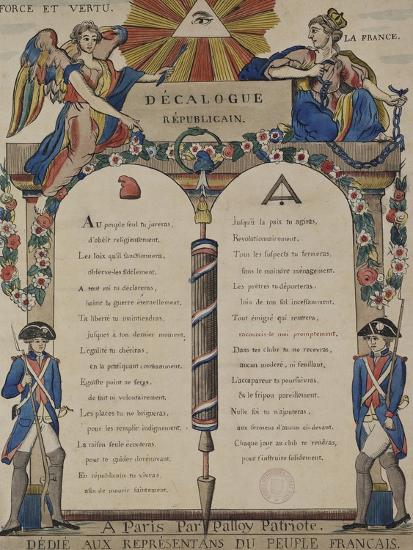 FORCE ET VERTU.
LA FRANCE.
DÉCALOGUE
RÉPUBLICAIN.
Au peuple seul tu jureras,
d'obéir religieusement.
Les loix qu'il sanctionnera,
observe-les fidelement.
A tout roi tu déclareras,
haine et guerre éternellement.
Ta liberté tu maintiendras,
jusques à ton dernier moment.
L'égalité tu chériras,
en la pratiquant constamment.
Egoïste point ne seras,
de fait ni volontairement.
Les places tu ne brigueras,
pour les remplir indignement.
La raison seule écouteras,
pour te guider dorénavant.
En républicain tu vivras,
afin de mourir saintement.
Jusqu'à la paix tu agiras,
Revolutionnairement.
Tous les suspects tu fermeras,
sans le moindre ménagement.
Les prêtres tu déporteras,
loin de ton sol incessamment.
Tout émigré qui rentrera,
racourcis-le moi promptement.
Dans tes club tu ne recevras,
aucun modéré, ni feuillant,
L'accapareur tu poursuivras,
& le fripon pareillement.
Nulle foi tu n'ajouteras,
aux sermens d'aucun ci-devant.
Chaque jour au club te rendras,
pour t'instruire solidement.
A Paris Par Palloy Patriote.
DÉDIÉ AUX REPRÉSENTANS DU PEUPLE FRANCAIS.